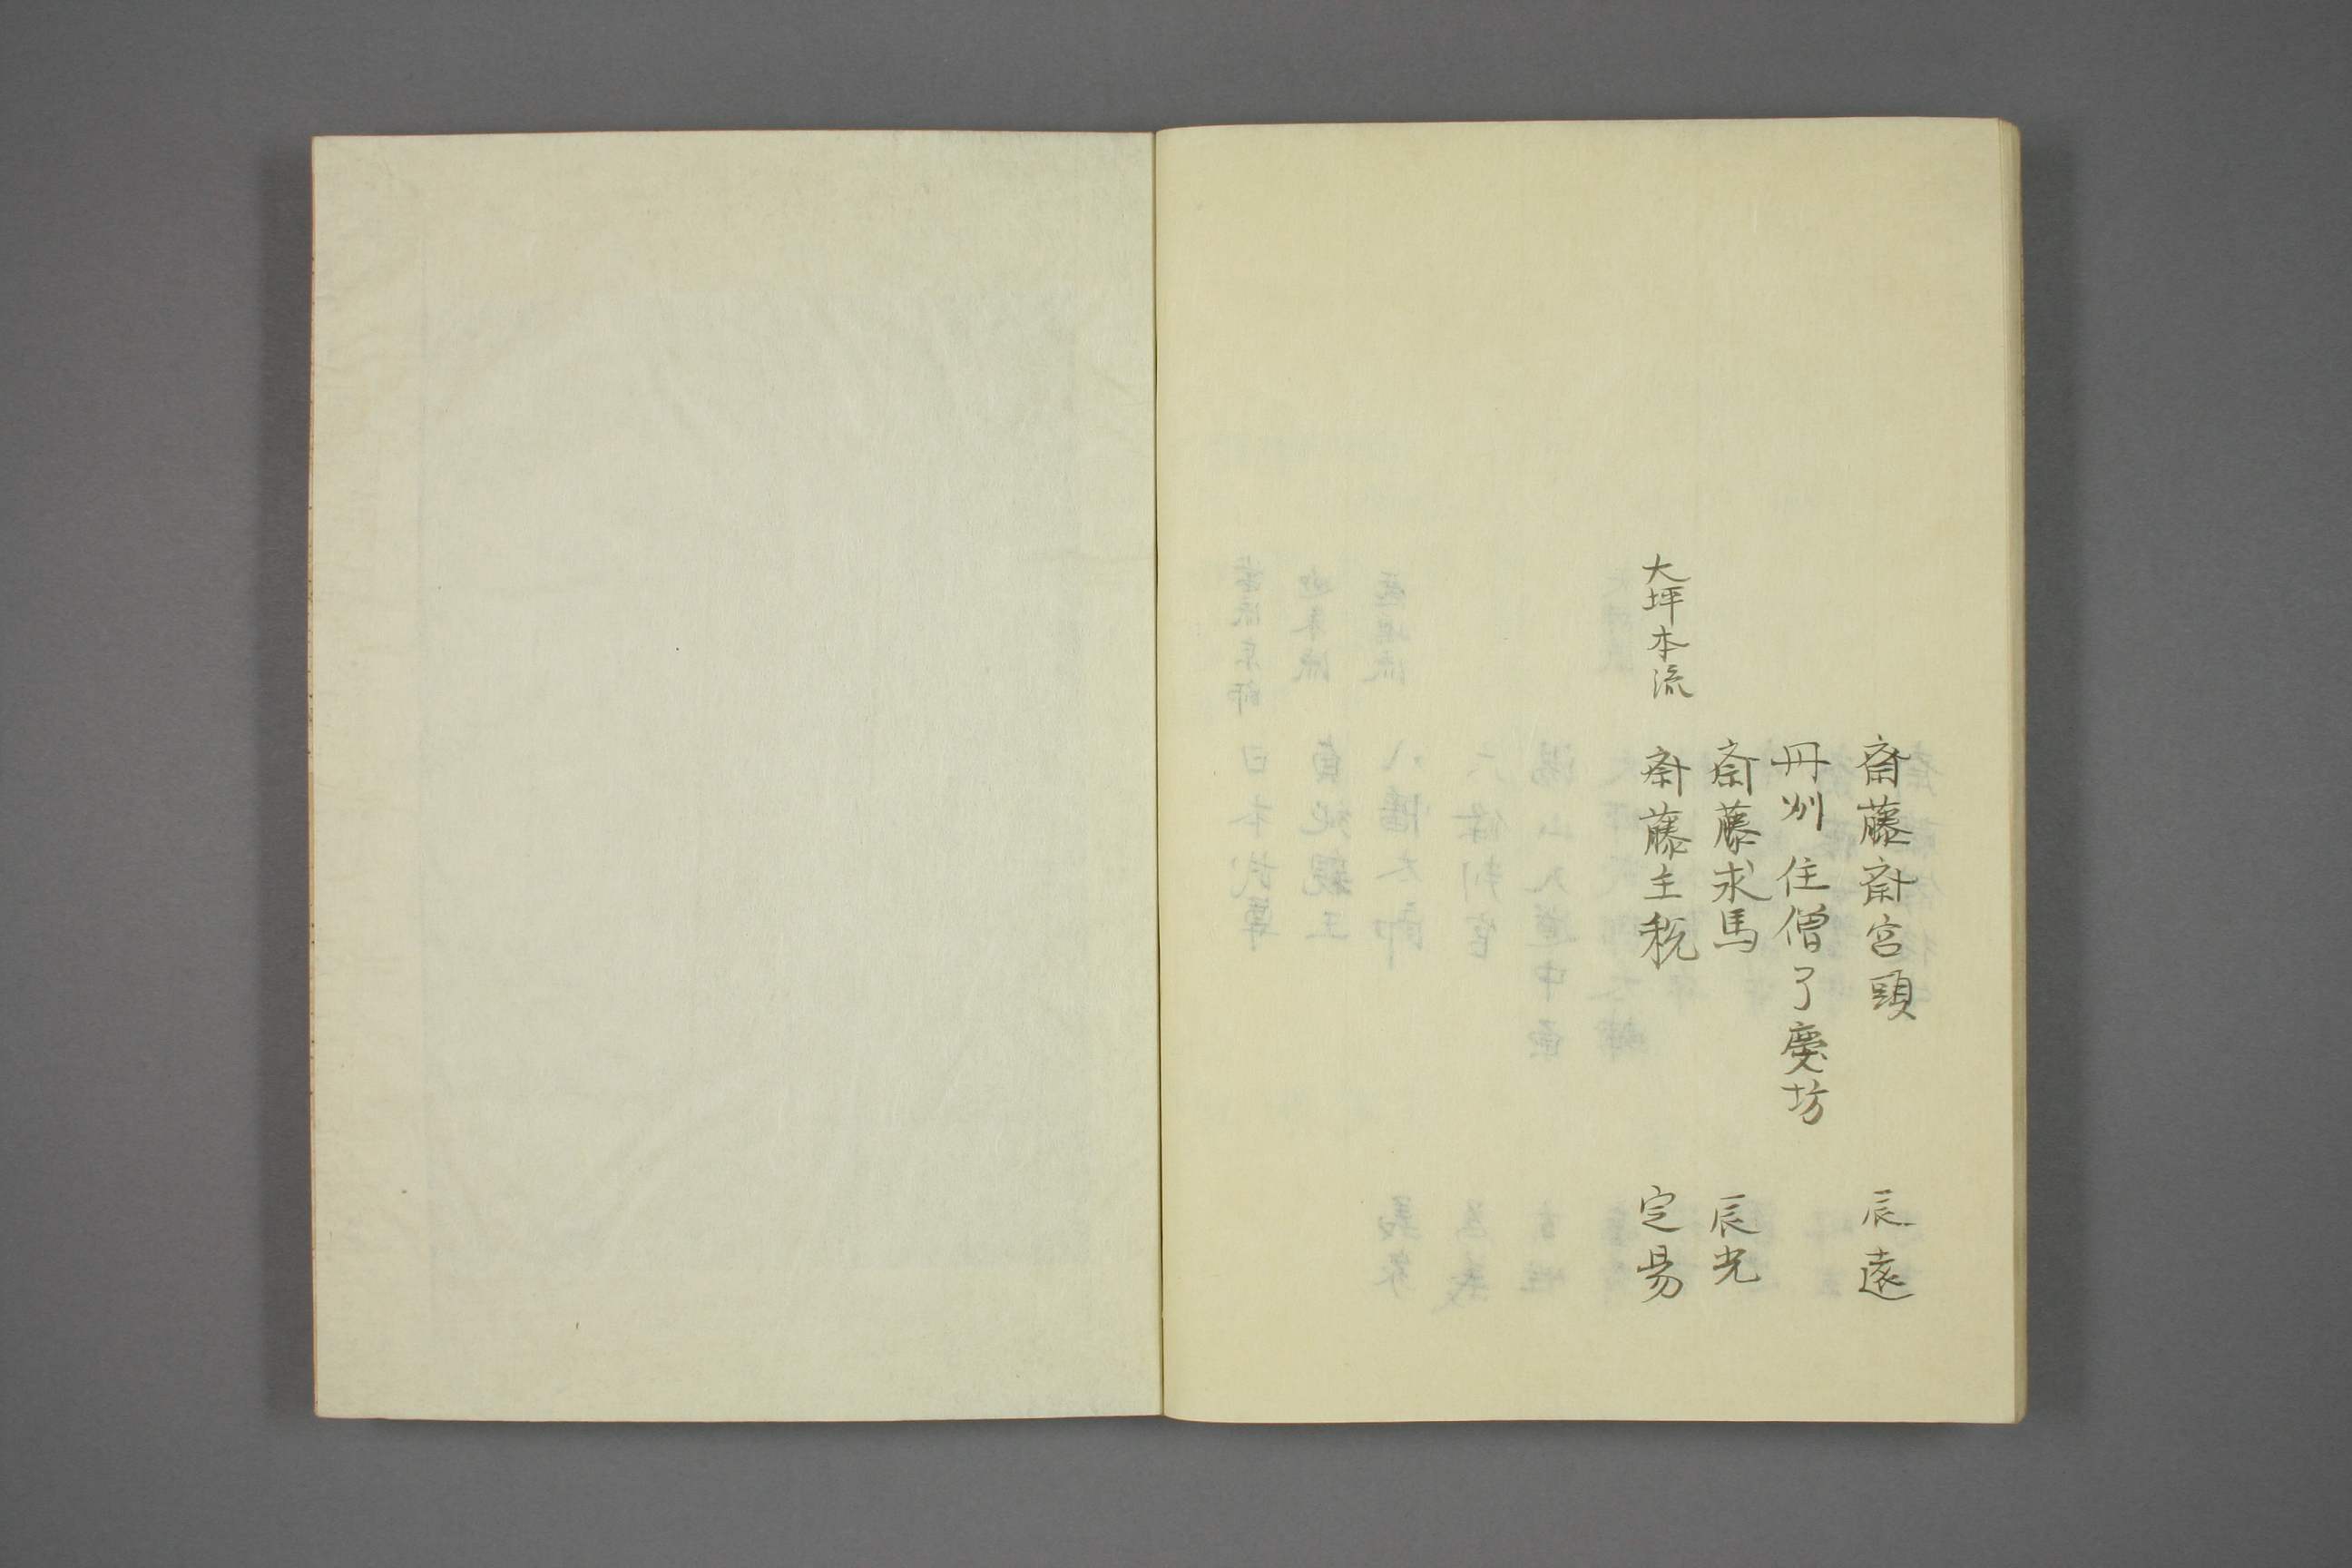 斎藤斎宮頭 辰遠
丹州 住僧了慶坊
斎藤求馬 辰光
大坪本流 斎藤主税 定易